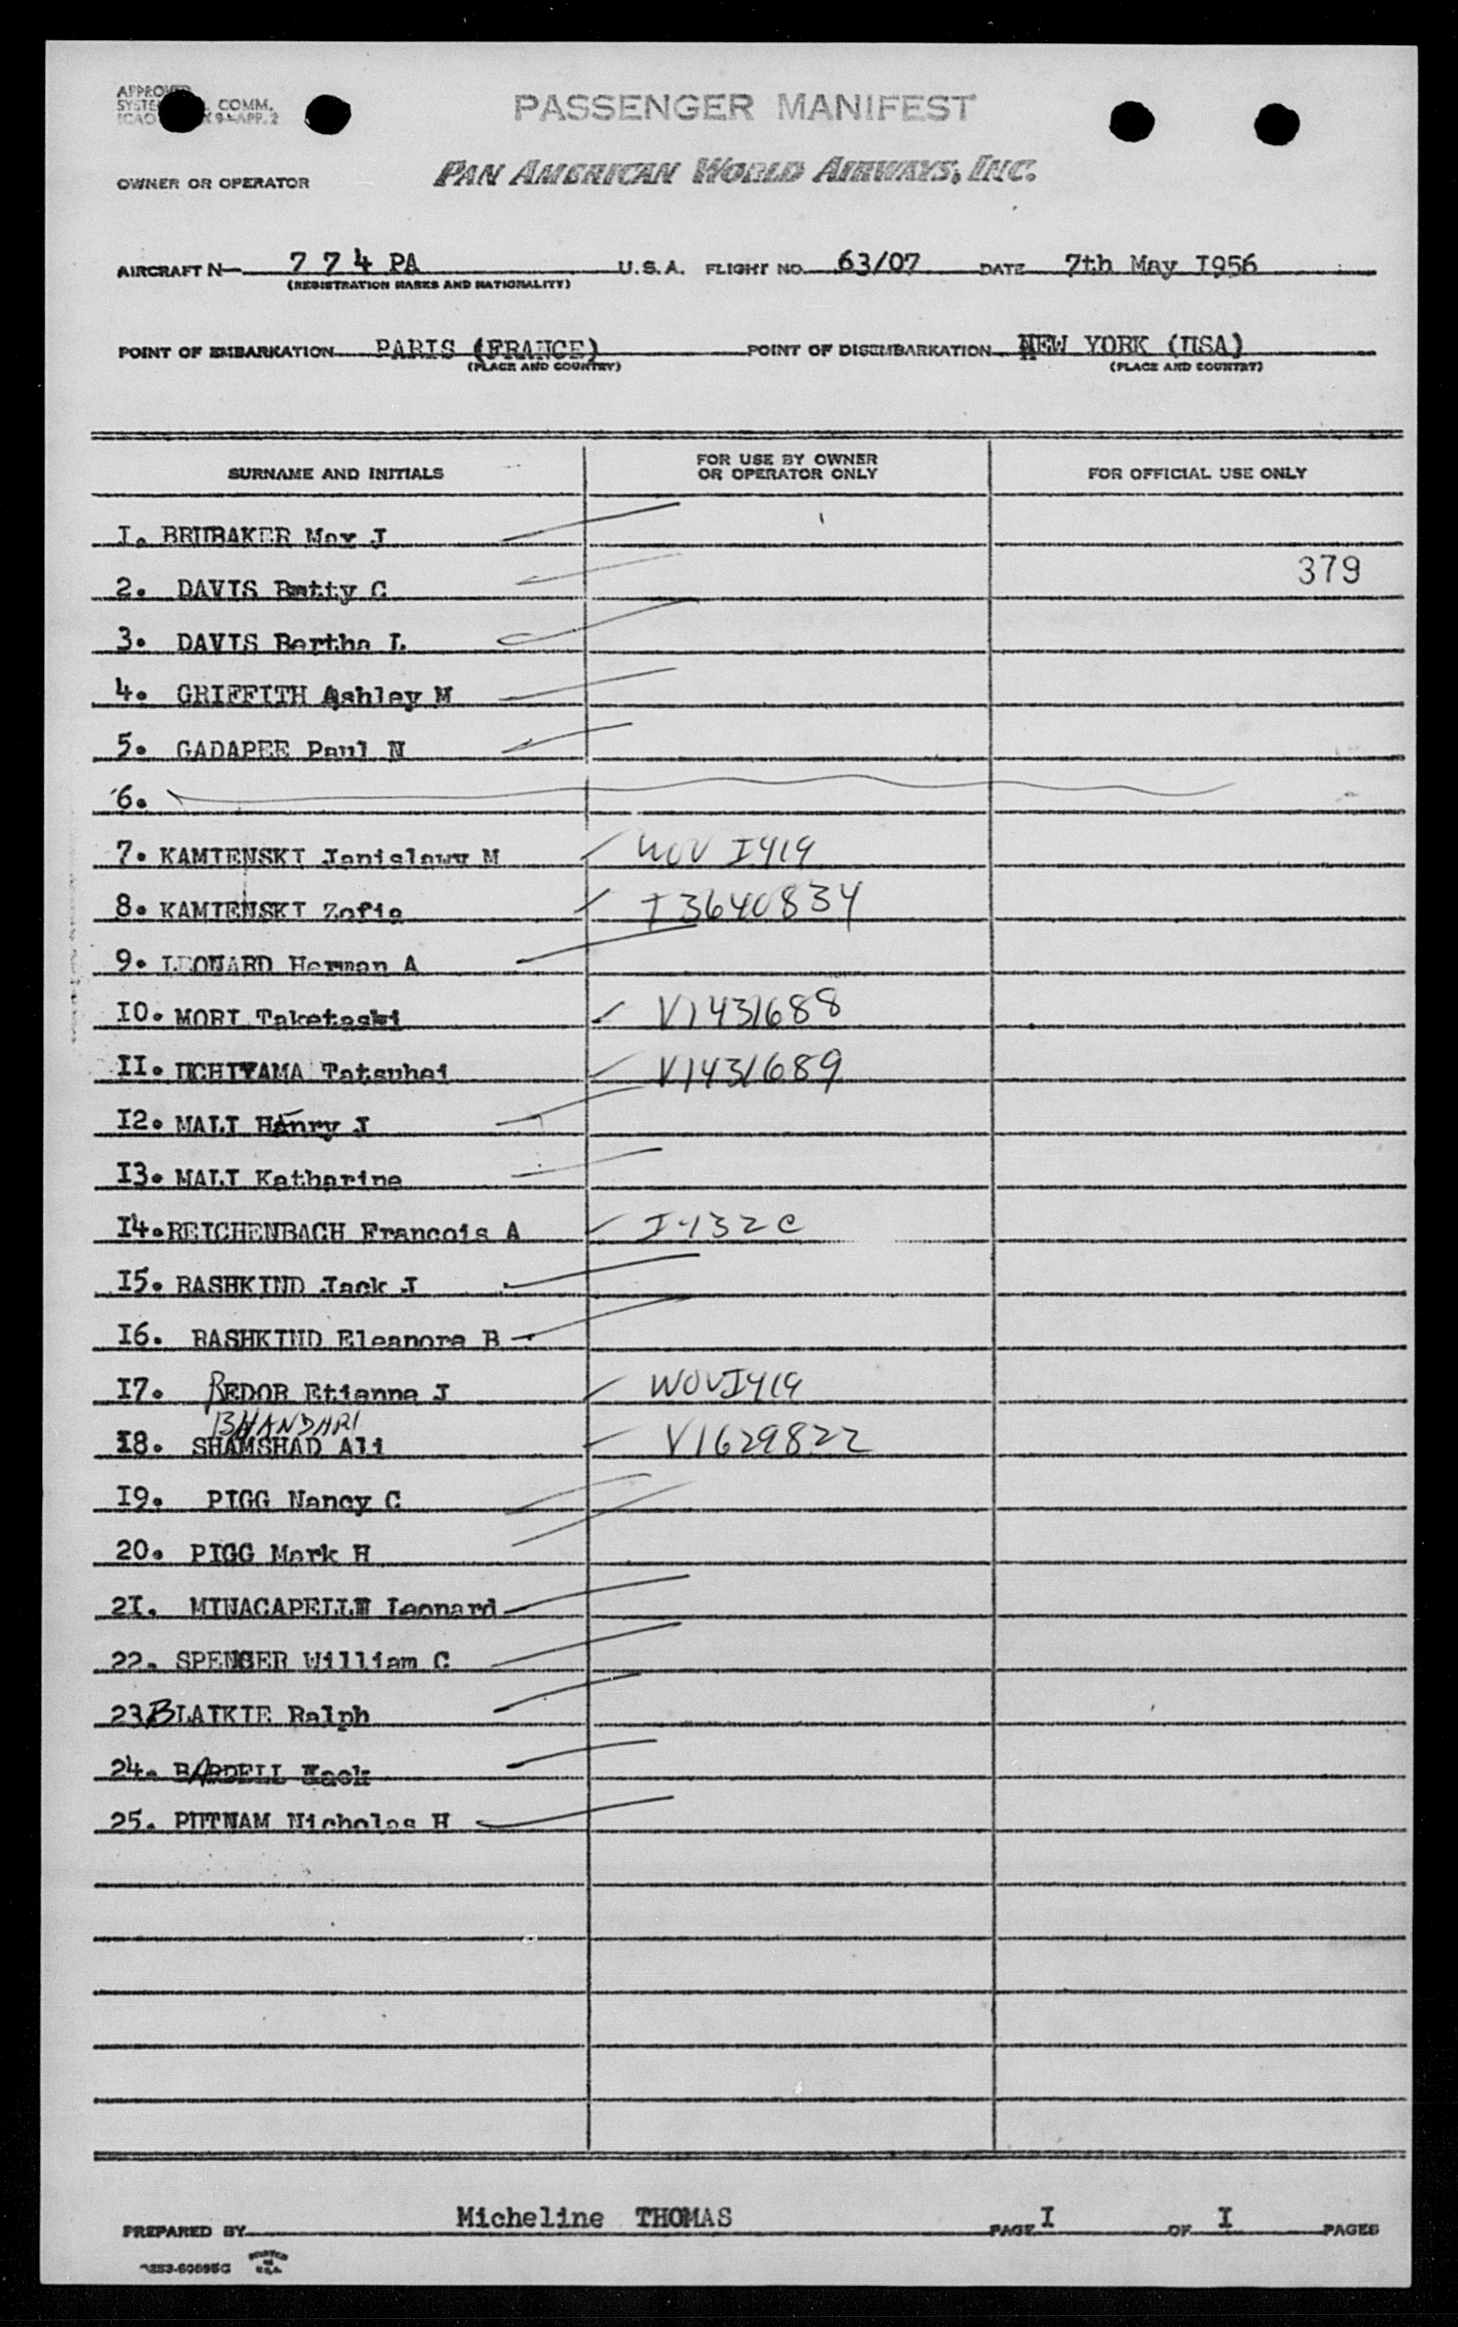 PASSENGER MANIFEST
COMM.
9-APP. 2
OWNER OR OPERATOR PAN AMERICAN WORLD AIRWAYS, INC.
AIRCRAFT N- 7 7 4 PA U.S.A. FLIGHT NO. 63/07 DATE 7th May I956
(REGISTRATION MARKS AND NATIONALITY)
POINT OF EMBARKATION PARIS (FRANCE) POINT OF DISEMBARKATION NEW YORK (USA)
(PLACE AND COUNTRY) (PLACE AND COUNTRY)
SURNAME AND INITIALS FOR USE BY OWNER OR OPERATOR ONLY FOR OFFICIAL USE ONLY
I. BRUBAKER May J
379
2. DAVIS Betty C
3. DAVIS Bertha L
4. GRIFFITH Ashley M
5. GADAPEE Paul N
6.
7. KAMIENSKI Janislawy M WOV I419
8. KAMIENSKI Zofia I3640834
9. LEONARD Herman A
I0. MORI Taketashi V1431688
II. UCHIYAMA Tatsuhei V1431689
I2. MALI Henry J
I3. MALI Katharine
I4. REICHENBACH Francois A
I5. RASHKIND Jack J
I6. RASHKIND Eleanore B
I7. REDOR Etienne J WOV I419
BHANDARI
I8. SHAMSHAD Ali V1629822
I9. PIGG Nancy C
20. PIGG Mark H
2I. MINACAPELLE Leonard
22. SPENCER William C
23 BLAIKIE Ralph
24. BARDELL
25. PUTNAM Nicholas H
PREPARED BY Micheline THOMAS PAGE I OF I PAGES
PRINTED IN U.S.A.